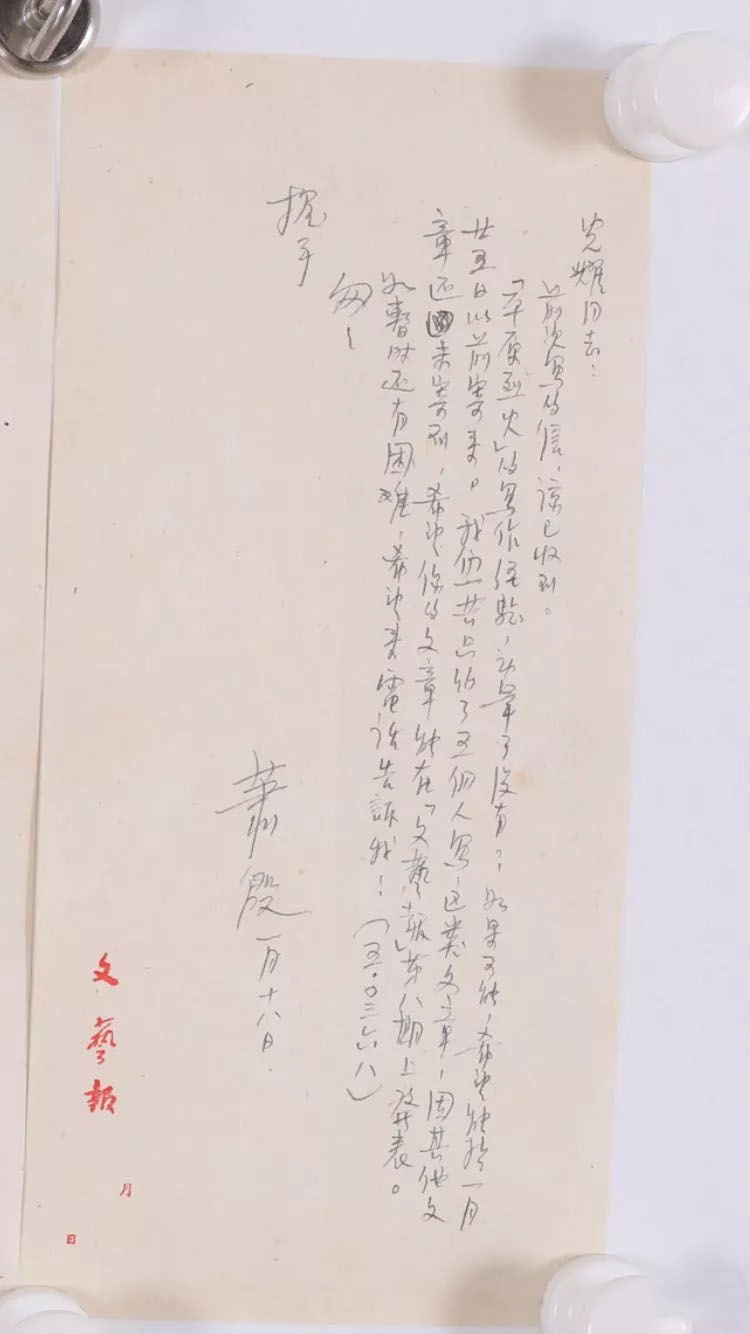 光耀同志：
前次写的信，谅已收到。
「平原烈火」的写作经验，动笔了没有？如果可能，希望能于一月
廿五日以前寄来。我们一共只约了五個人写这类文章，因其他文
章还未寄到，希望你的文章能在「文藝報」第八期上发表。
如暫时还有困难，希望来電话告訴我！（五·〇三六八）
匆匆
握手
萧殷 一月十八日.
文藝報
月
日